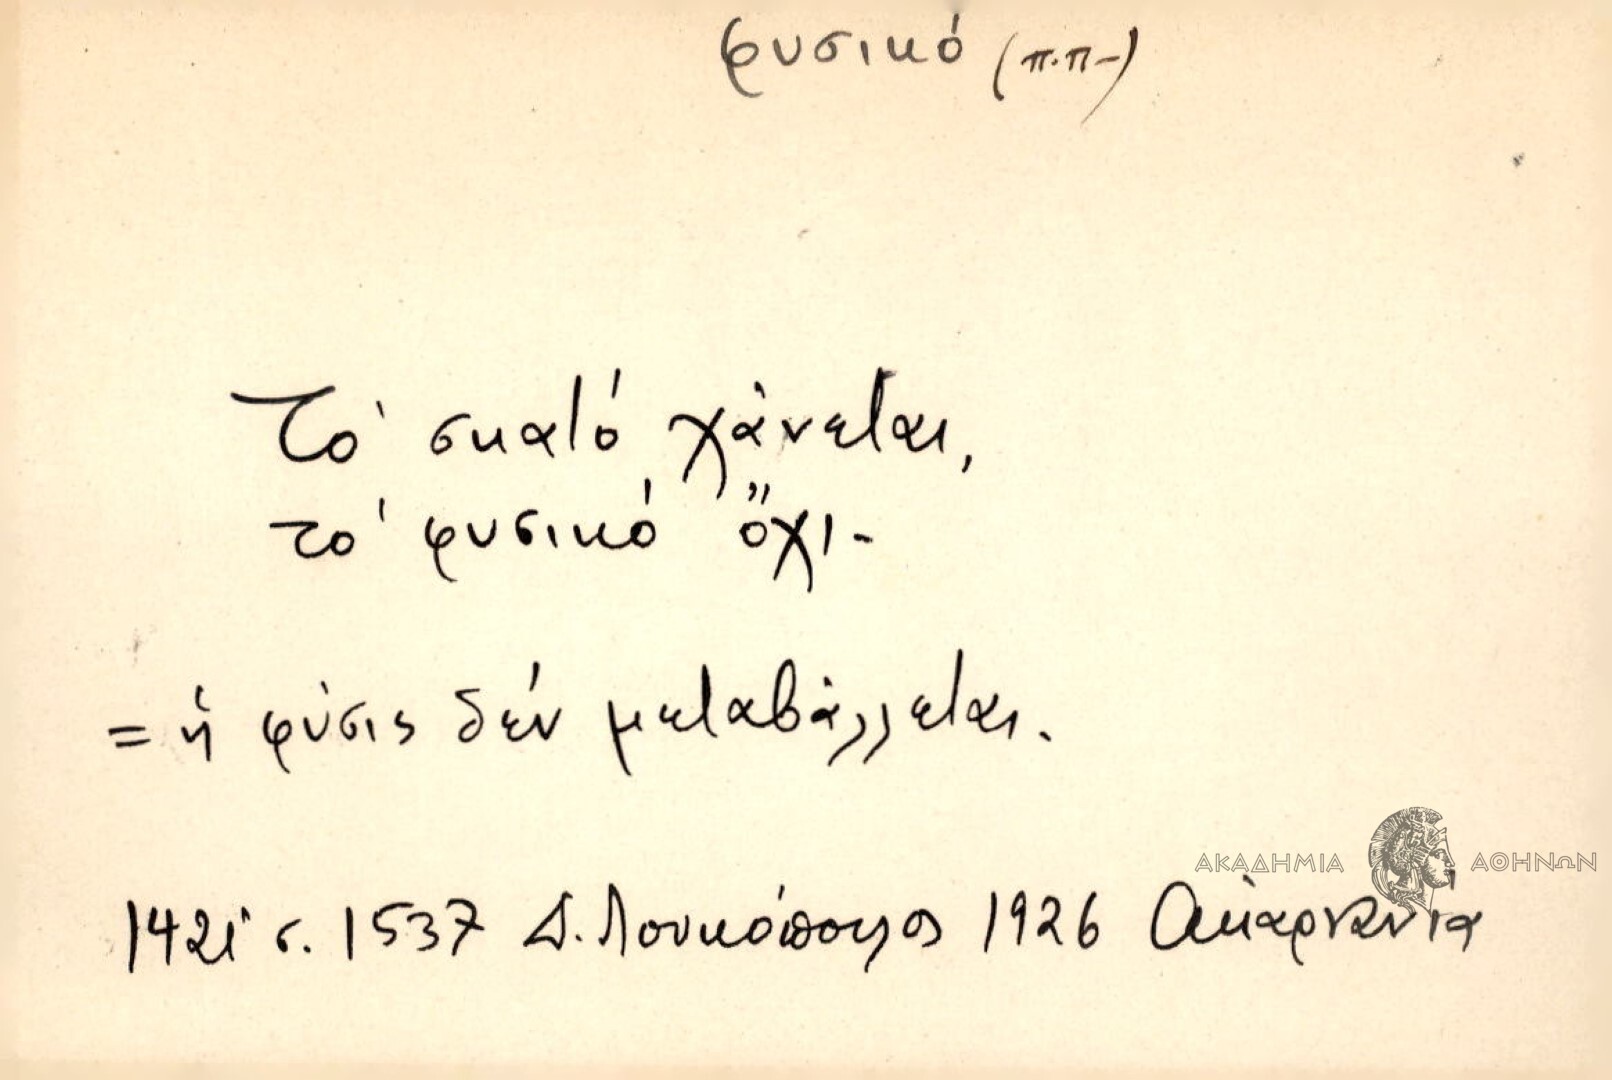 φυσικό (π.π-)
Τὸ σκατό χάνεται,
τὸ φυσικό ὄχι-
= ἡ φύσις δέν μεταβάλλεται.
ΑΚΑΔΗΜΙΑ ΑΘΗΝΩΝ
σ. 1537 Δ. Λουκόπουλος 1926 Ακαρνανια